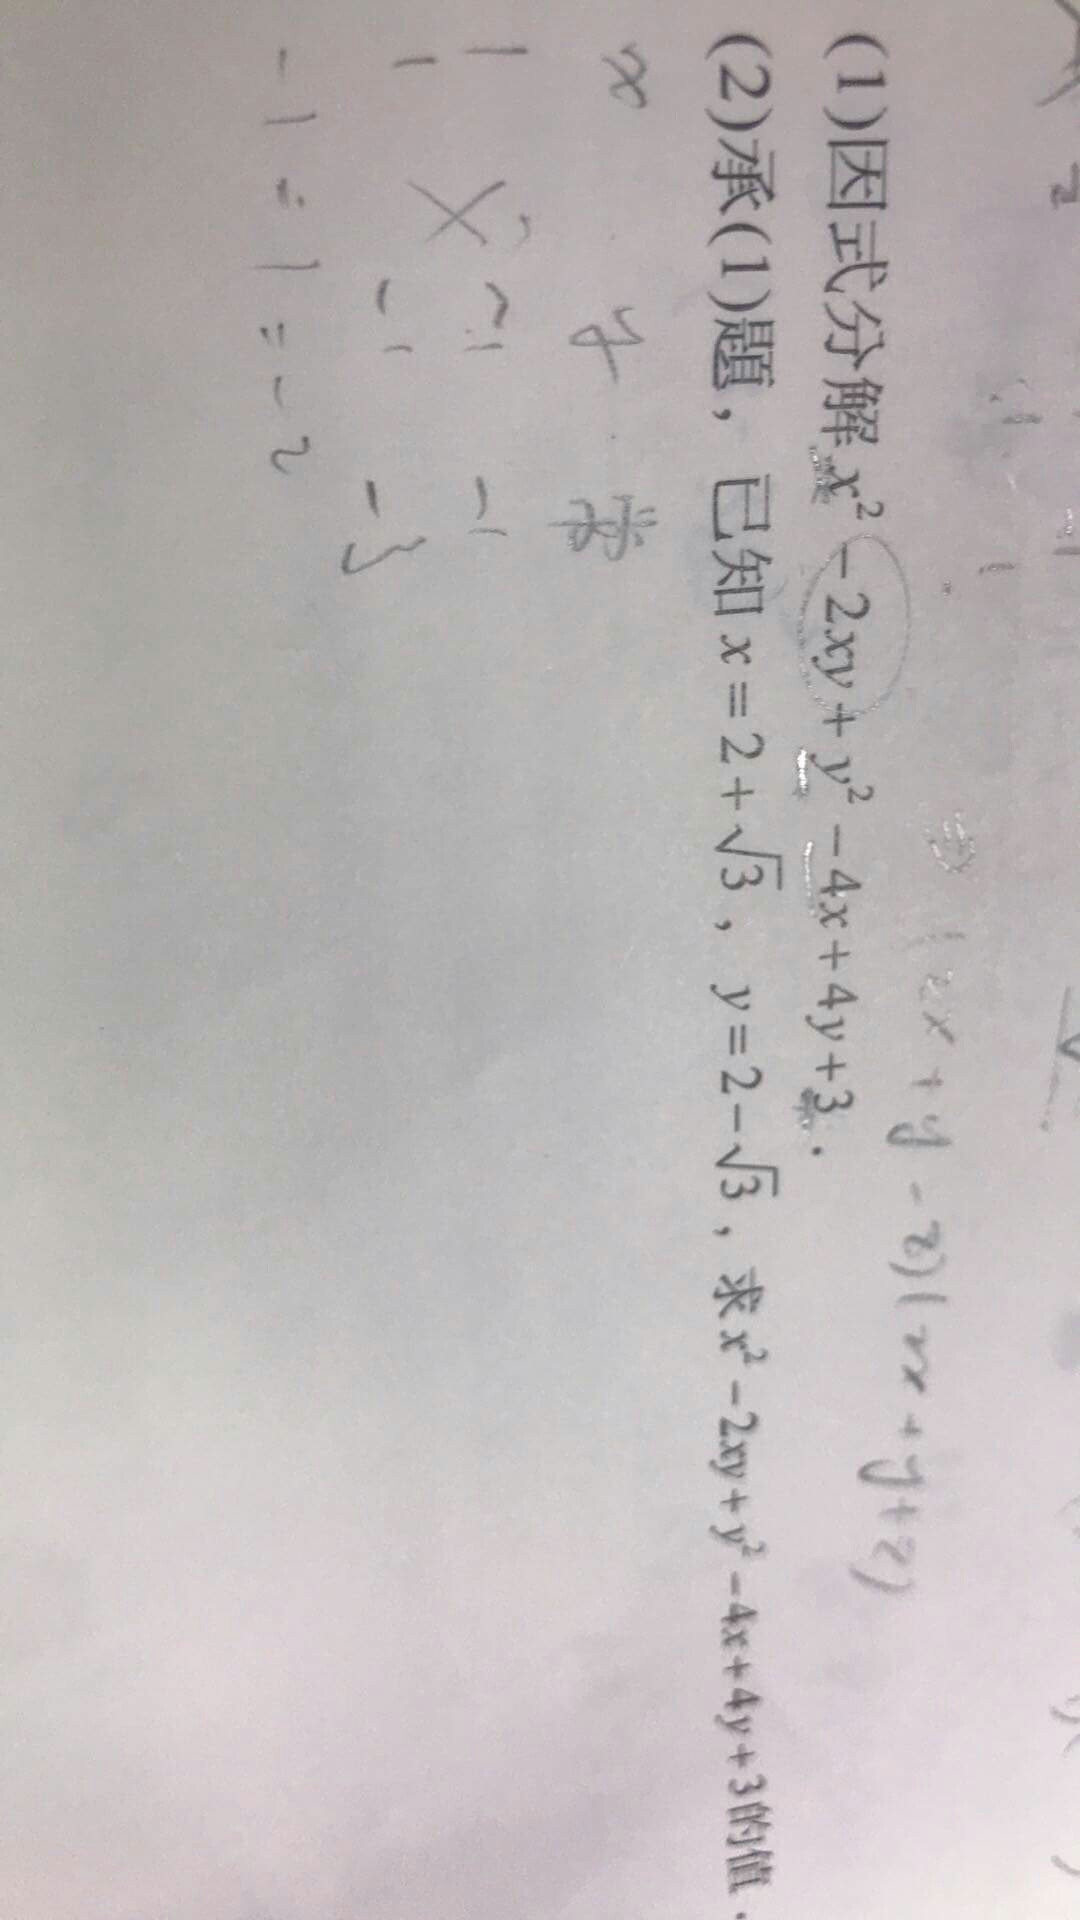 (2x+y-2)(xx+y+2)
(1)因式分解 x² -2xy+y² -4x+4y+3．
(2)承(1)題，已知 x=2+√3，y=2-√3，求 x² -2xy+y² -4x+4y+3的值．
x y 常
1 -1 -1
1 -1 -3
-1-1=-2